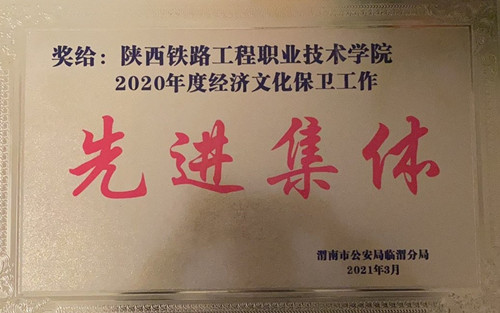 奖给：陕西铁路工程职业技术学院
2020年度经济文化保卫工作
先进集体
渭南市公安局临渭分局
2021年3月